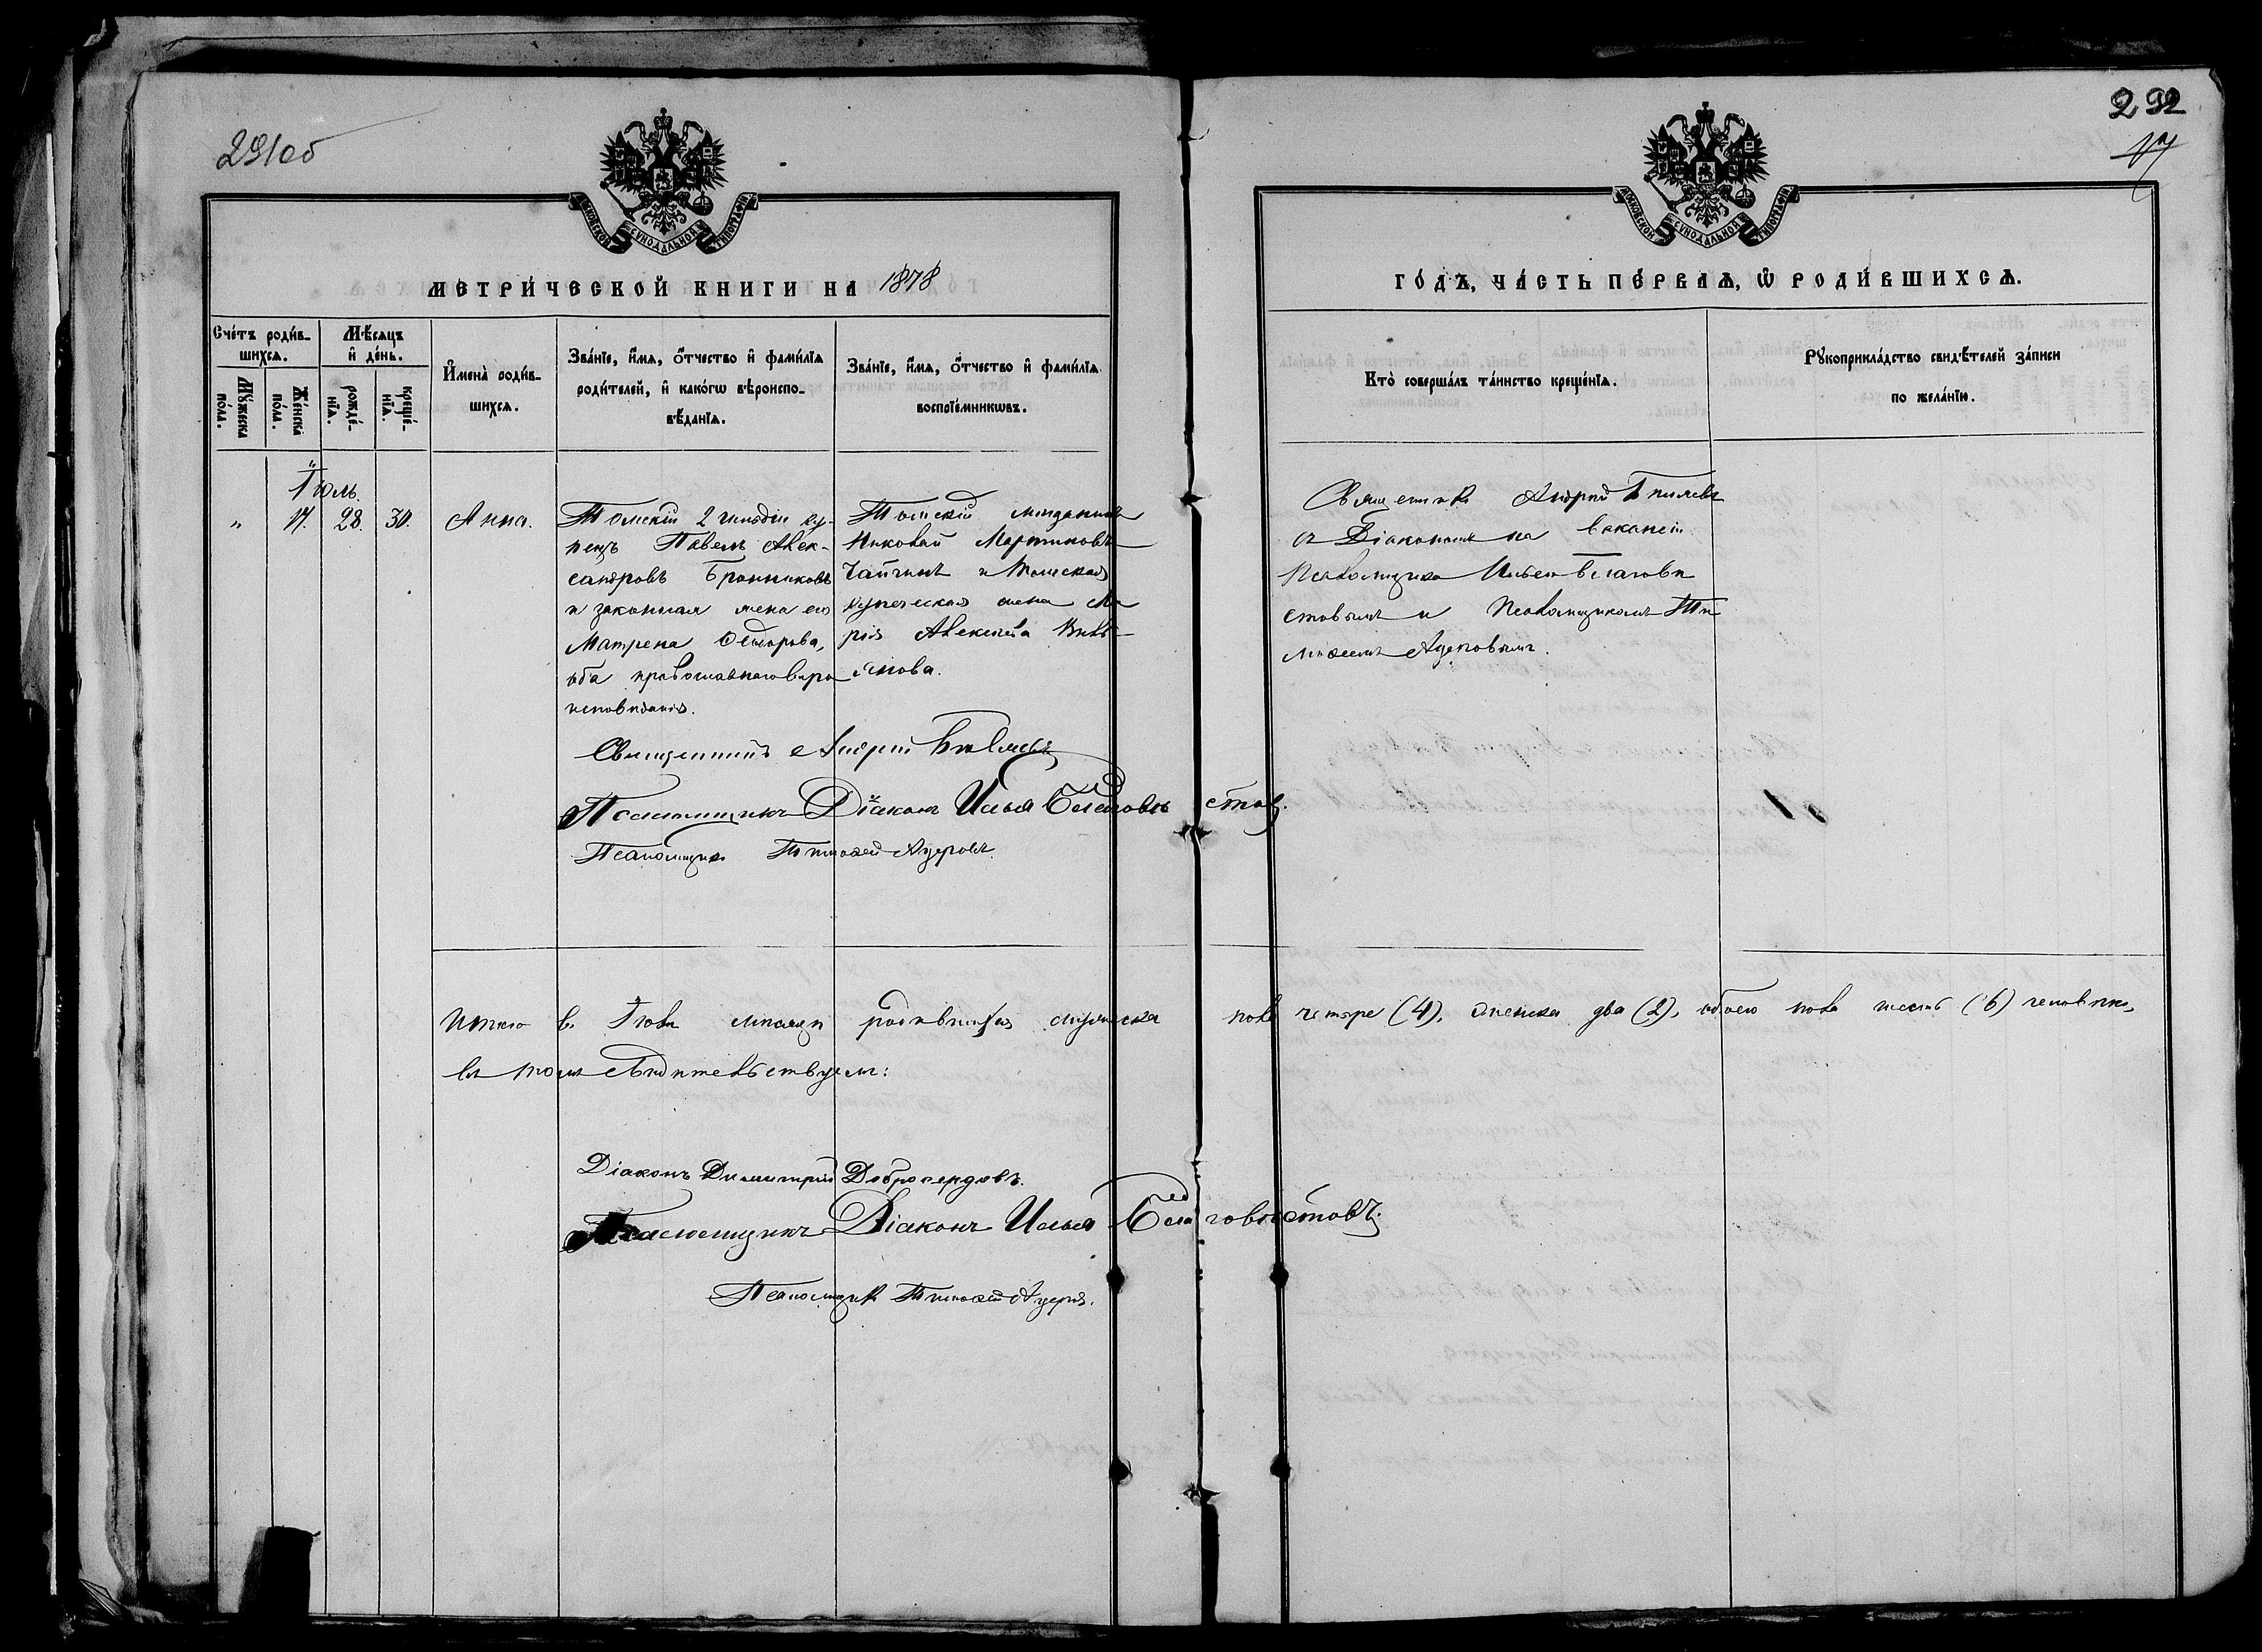 291об
292
17
МОСКОВСКОЙ СУНОДАЛЬНОЙ ТИПОГРАФІИ
МОСКОВСКОЙ СУНОДАЛЬНОЙ ТИПОГРАФІИ
МЕТРИ́ЧЕСКОЙ КНИГИ НА 1878
ГО́ДЪ, ЧА́СТЬ ПЕ́РВАѦ, Ѡ РОДИ́ВШИХСѦ.
Сче́тъ роди́в-
шихсѧ.
Мꙋ́жеска
по́ла.
Же́нска
по́ла.
Мѣ́сѧцъ
и҆ де́нь.
рожде́-
нїѧ.
креще́-
нїѧ.
И҆мена̀ роди́в-
шихсѧ.
Зва́нїе, и҆́мѧ, ѻ҆́тчество и҆ фами́лїѧ
роди́телей, и҆ како́гѡ вѣроиспо-
вѣ́данїѧ.
Зва́нїе, и҆́мѧ, ѻ҆́тчество и҆ фами́лїѧ
воспрїе́мникѡвъ.
Кто̀ соверша́лъ та́инство креще́нїѧ.
Рꙋкоприкла́дство свидѣ́телей за́писи
по жела́нїю.
Іюль.
„ 17. 28. 30. Анна.
Томскій 2 гильдіи ку-
пецъ Павелъ Алек-
сандровъ Бронниковъ
и законная жена его
Матрена Ѳедорова,
оба православнаго вѣро
исповѣданія.
Томскій мѣщанинъ
Николай Мартиновъ
и Томская
купеческая жена Ма
рія Алексѣева
Священникъ Андрей
съ Діакономъ на вакансіи
Псаломщика Ильею Благовѣ
стовымъ и Псаломщикомъ Ти
моѳеемъ
Священникъ Андрей
Псаломщикъ Діаконъ Илья Благовѣстовъ.
Псаломщикъ Тимоѳей
Итого въ Іюлѣ мѣсяцѣ родившихся мужеска пола четыре (4), женска два (2), обоего пола шесть (6) человѣкъ,
въ томъ свидѣтельствуемъ:
Діаконъ Димитрій Добросердовъ.
Псаломщикъ Діаконъ Илья Благовѣстовъ.
Псаломщикъ Тимоѳей